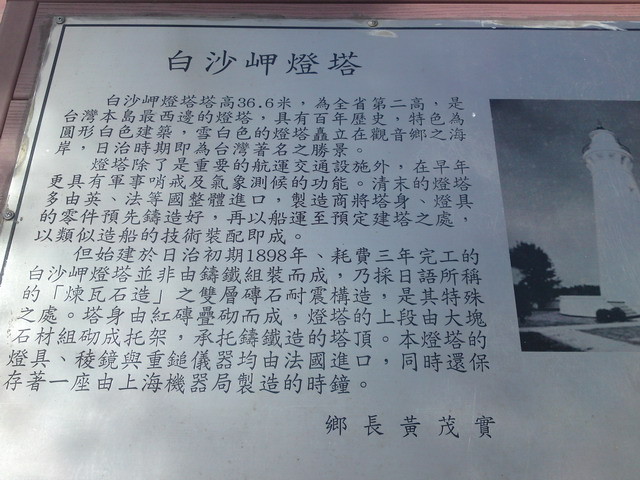 白沙岬燈塔
白沙岬燈塔塔高36.6米，為全省第二高，是
台灣本島最西邊的燈塔，具有百年歷史，特色為
圓形白色建築，雪白色的燈塔矗立在觀音鄉之海
岸，日治時期即為台灣著名之勝景。
燈塔除了是重要的航運交通設施外，在早年
更具有軍事哨戒及氣象測候的功能。清末的燈塔
多由英、法等國整體進口，製造商將塔身、燈具
的零件預先鑄造好，再以船運至預定建塔之處，
以類似造船的技術裝配即成。
但始建於日治初期1898年、耗費三年完工的
白沙岬燈塔並非由鑄鐵組裝而成，乃採日語所稱
的「煉瓦石造」之雙層磚石耐震構造，是其特殊
之處。塔身由紅磚疊砌而成，燈塔的上段由大塊
石材組砌成托架，承托鑄鐵造的塔頂。本燈塔的
燈具、稜鏡與重鎚儀器均由法國進口，同時還保
存著一座由上海機器局製造的時鐘。
鄉長黃茂實